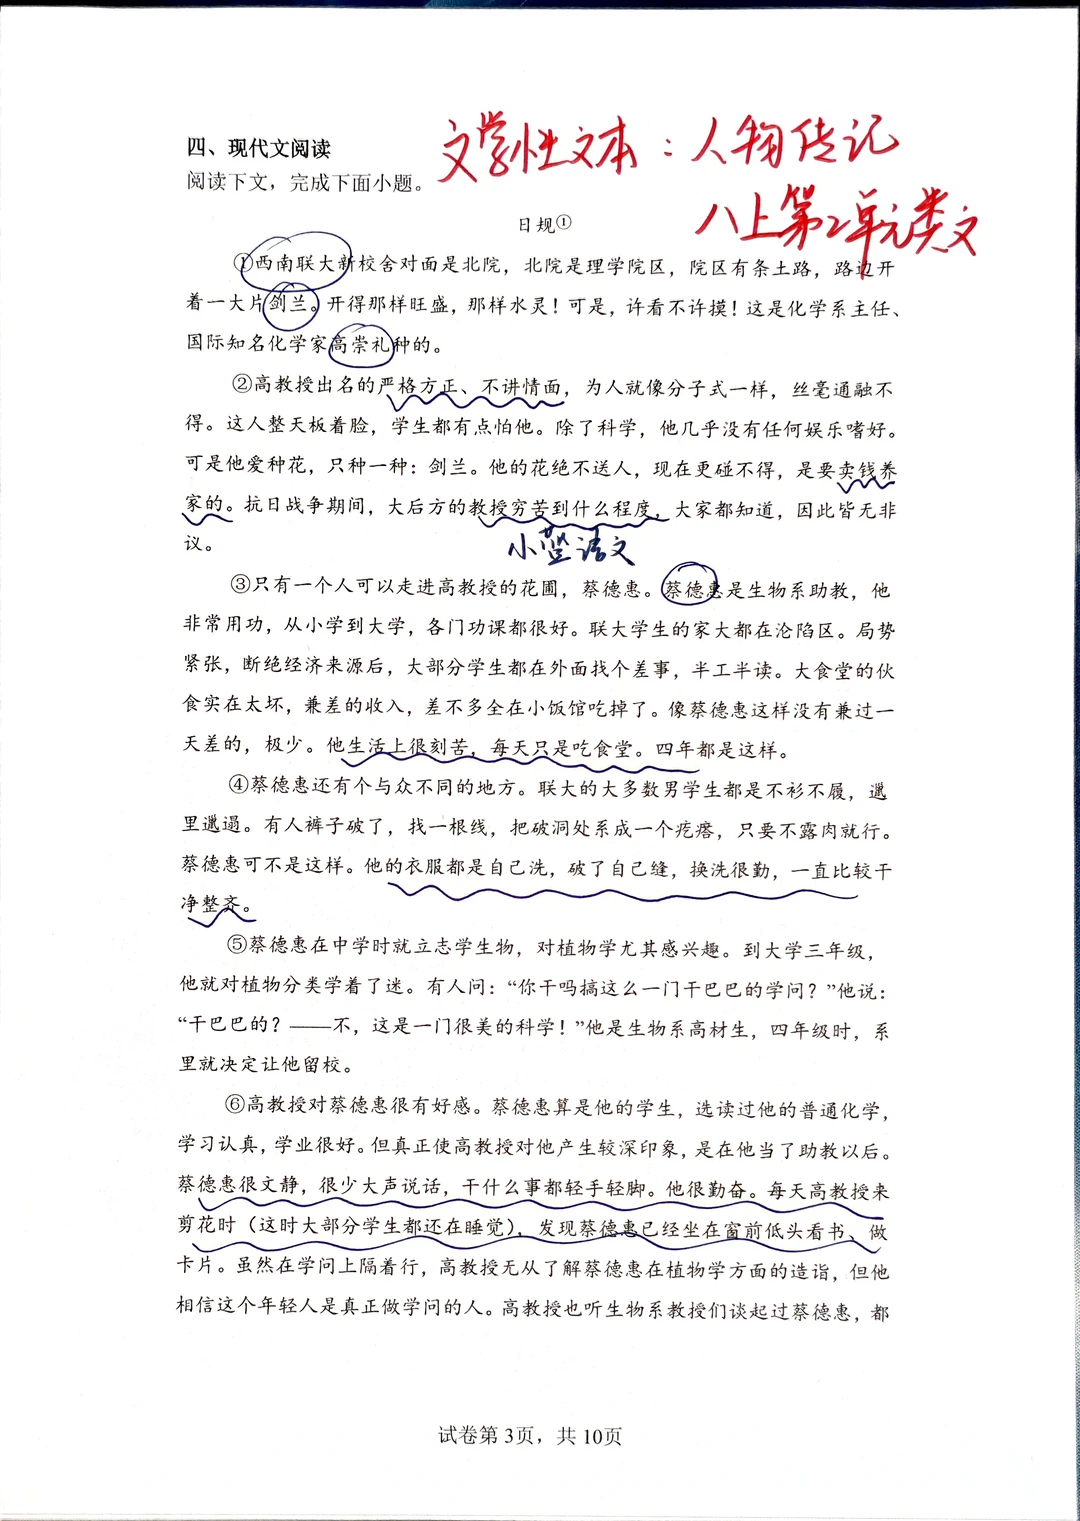 文学性文本：人物传记
八上第2单元类文
四、现代文阅读
阅读下文，完成下面小题。
日规①
①西南联大新校舍对面是北院，北院是理学院区，院区有条土路，路边开
着一大片剑兰。开得那样旺盛，那样水灵！可是，许看不许摸！这是化学系主任、
国际知名化学家高崇礼种的。
②高教授出名的严格方正、不讲情面，为人就像分子式一样，丝毫通融不
得。这人整天板着脸，学生都有点怕他。除了科学，他几乎没有任何娱乐嗜好。
可是他爱种花，只种一种：剑兰。他的花绝不送人，现在更碰不得，是要卖钱养
家的。抗日战争期间，大后方的教授穷苦到什么程度，大家都知道，因此皆无非
议。
小蓝语文
③只有一个人可以走进高教授的花圃，蔡德惠。蔡德惠是生物系助教，他
非常用功，从小学到大学，各门功课都很好。联大学生的家大都在沦陷区。局势
紧张，断绝经济来源后，大部分学生都在外面找个差事，半工半读。大食堂的伙
食实在太坏，兼差的收入，差不多全在小饭馆吃掉了。像蔡德惠这样没有兼过一
天差的，极少。他生活上很刻苦，每天只是吃食堂。四年都是这样。
④蔡德惠还有个与众不同的地方。联大的大多数男学生都是不衫不履，邋
里邋遢。有人裤子破了，找一根线，把破洞处系成一个疙瘩，只要不露肉就行。
蔡德惠可不是这样。他的衣服都是自己洗，破了自己缝，换洗很勤，一直比较干
净整齐。
⑤蔡德惠在中学时就立志学生物，对植物学尤其感兴趣。到大学三年级，
他就对植物分类学着了迷。有人问：“你干吗搞这么一门干巴巴的学问？”他说：
“干巴巴的？——不，这是一门很美的科学！”他是生物系高材生，四年级时，系
里就决定让他留校。
⑥高教授对蔡德惠很有好感。蔡德惠算是他的学生，选读过他的普通化学，
学习认真，学业很好。但真正使高教授对他产生较深印象，是在他当了助教以后。
蔡德惠很文静，很少大声说话，干什么事都轻手轻脚。他很勤奋。每天高教授来
剪花时（这时大部分学生都还在睡觉），发现蔡德惠已经坐在窗前低头看书、做
卡片。虽然在学问上隔着行，高教授无从了解蔡德惠在植物学方面的造诣，但他
相信这个年轻人是真正做学问的人。高教授也听生物系教授们谈起过蔡德惠，都
试卷第 3页，共 10页